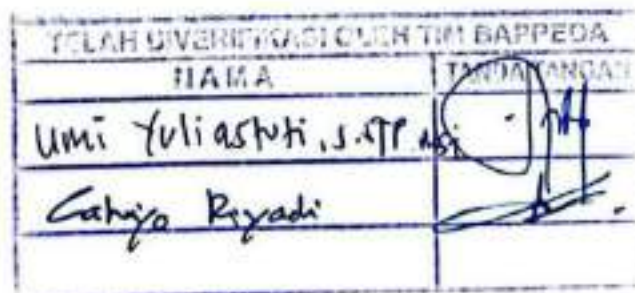 TELAH DIVERIFIKASI OLEH TIM BAPPEDA
NAMA TANDA TANGAN
Umi Yuliastuti, S.STP, MSi
Cahyo Riyadi